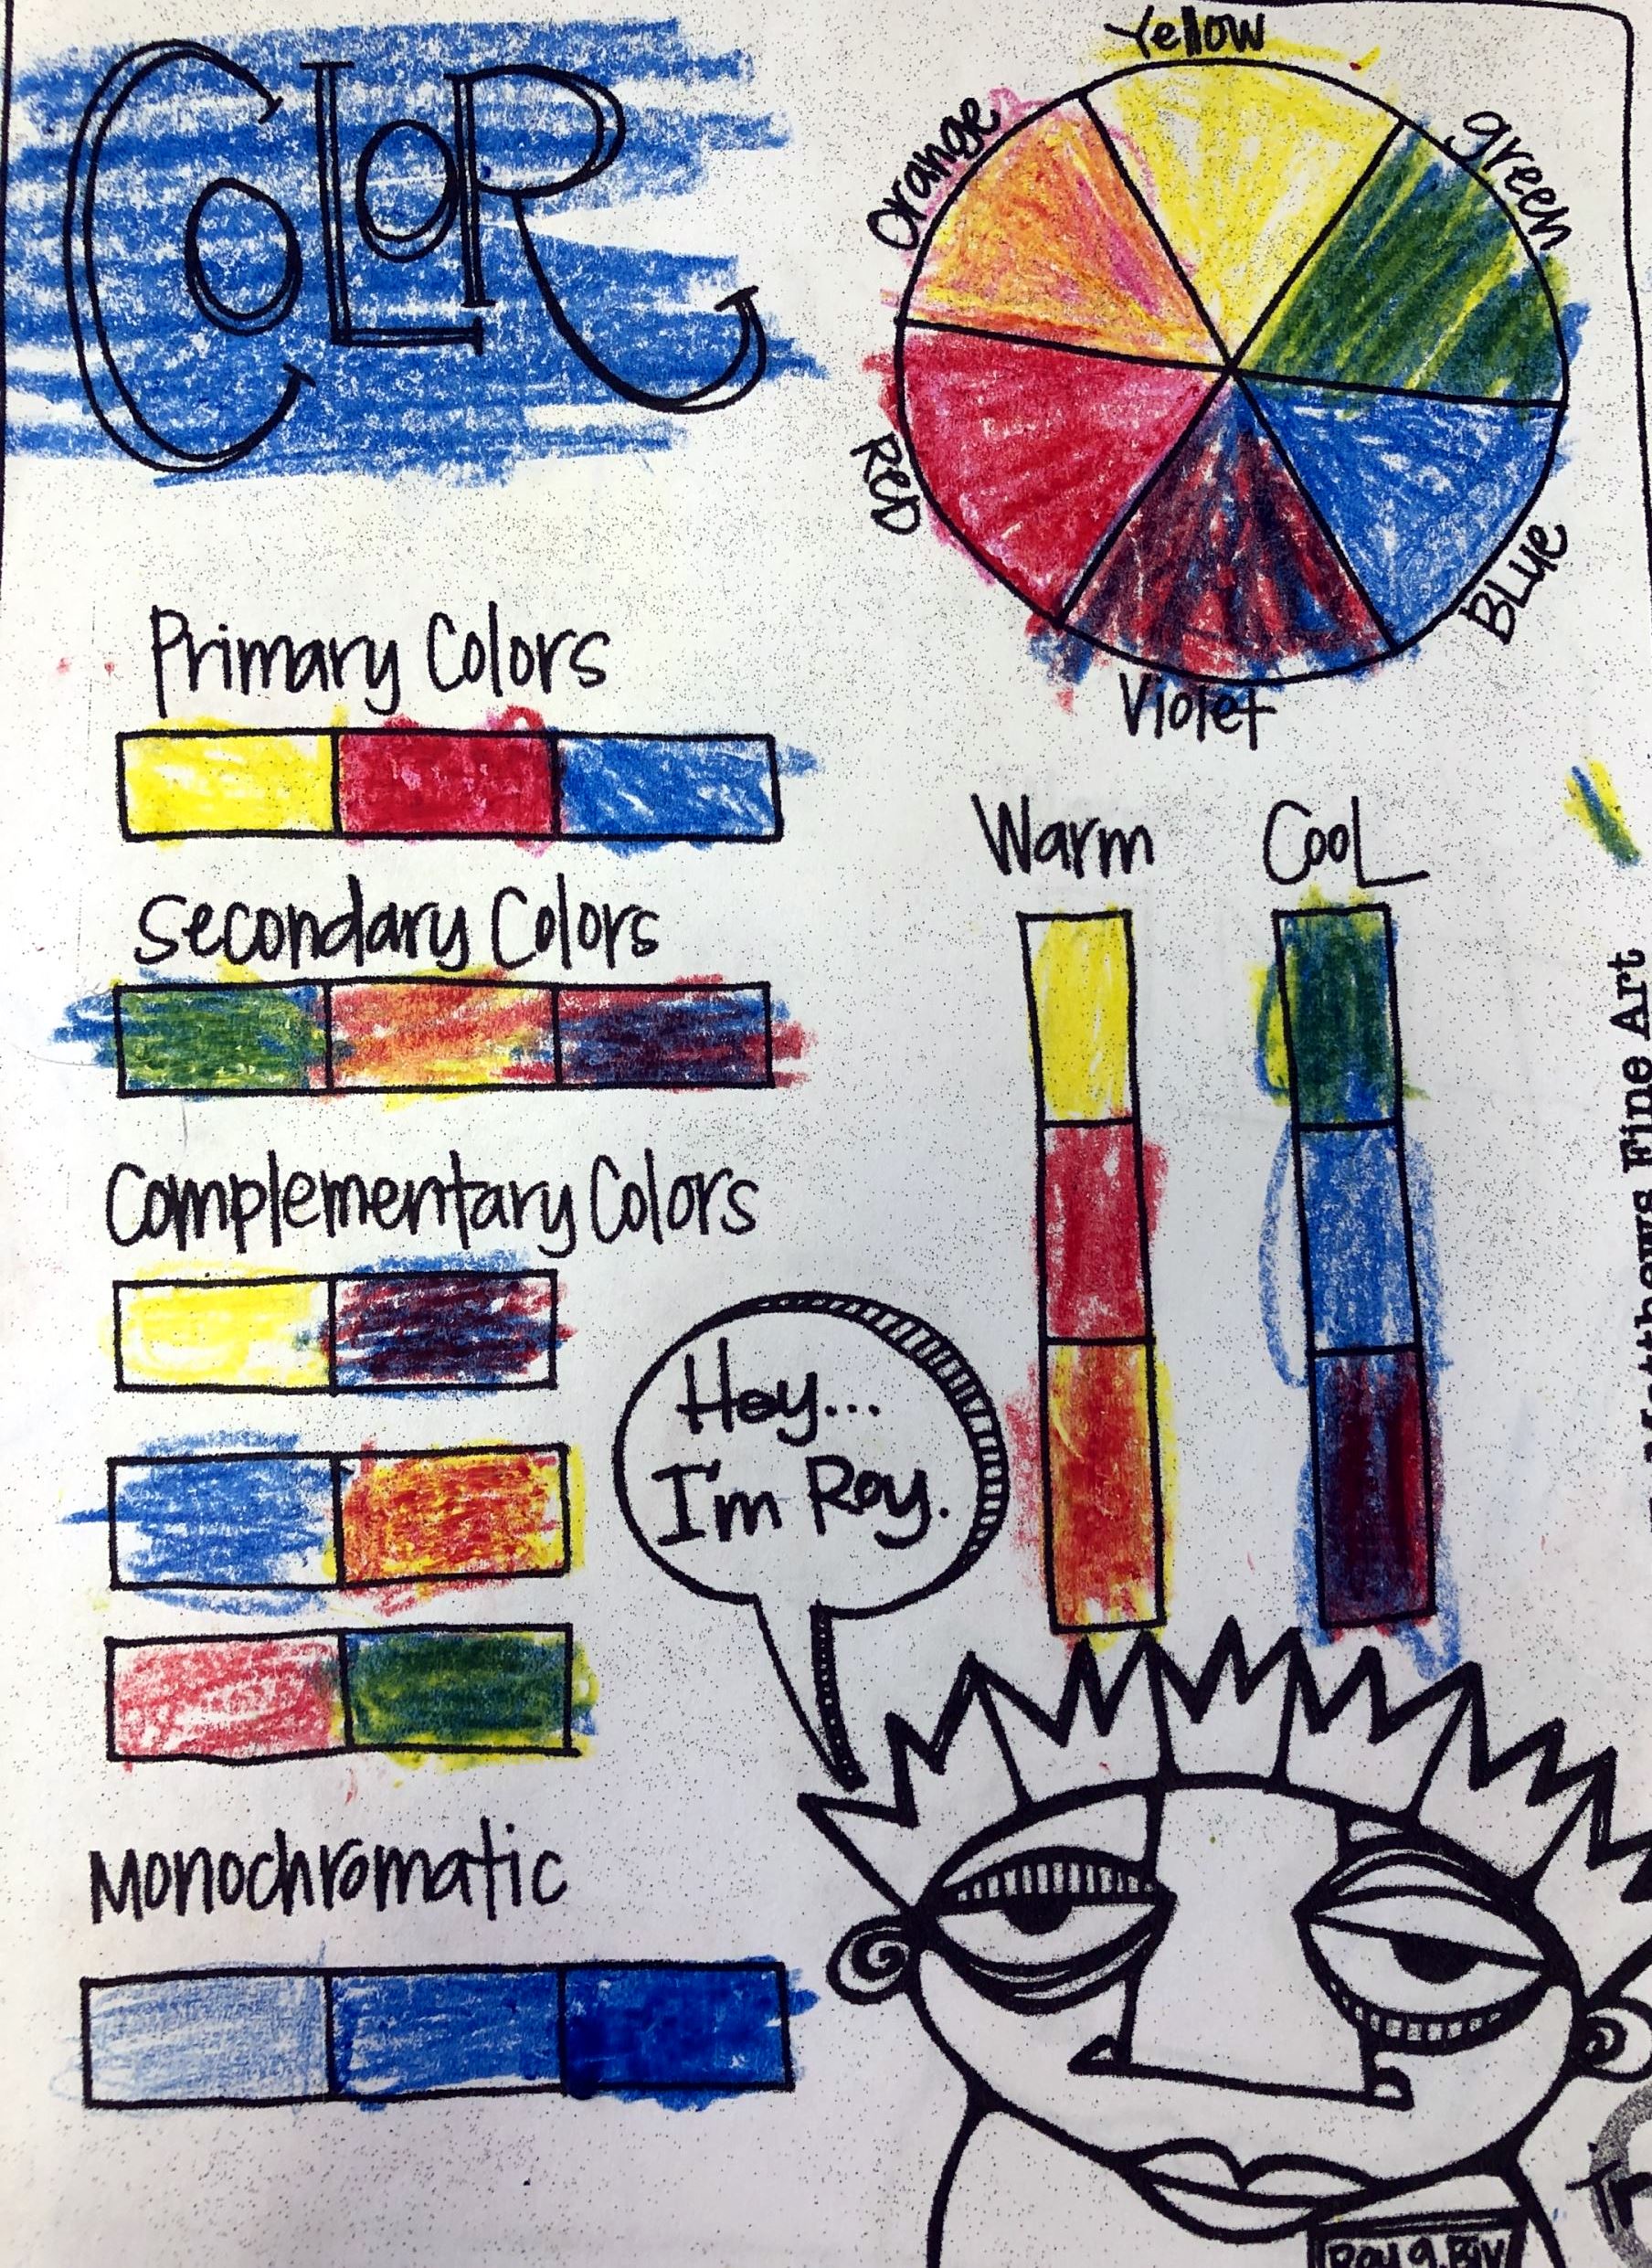 COLOR
Yellow
green
Orange
Red
BLue
Violet
Primary Colors
Warm
CooL
Secondary Colors
Complementary Colors
Hey...
I'm Roy.
Monochromatic
Matthews Fine Art
Roy g. Biv